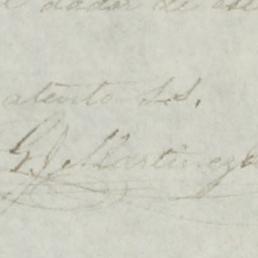 dador de
atento S.S.
G. J. Martinez